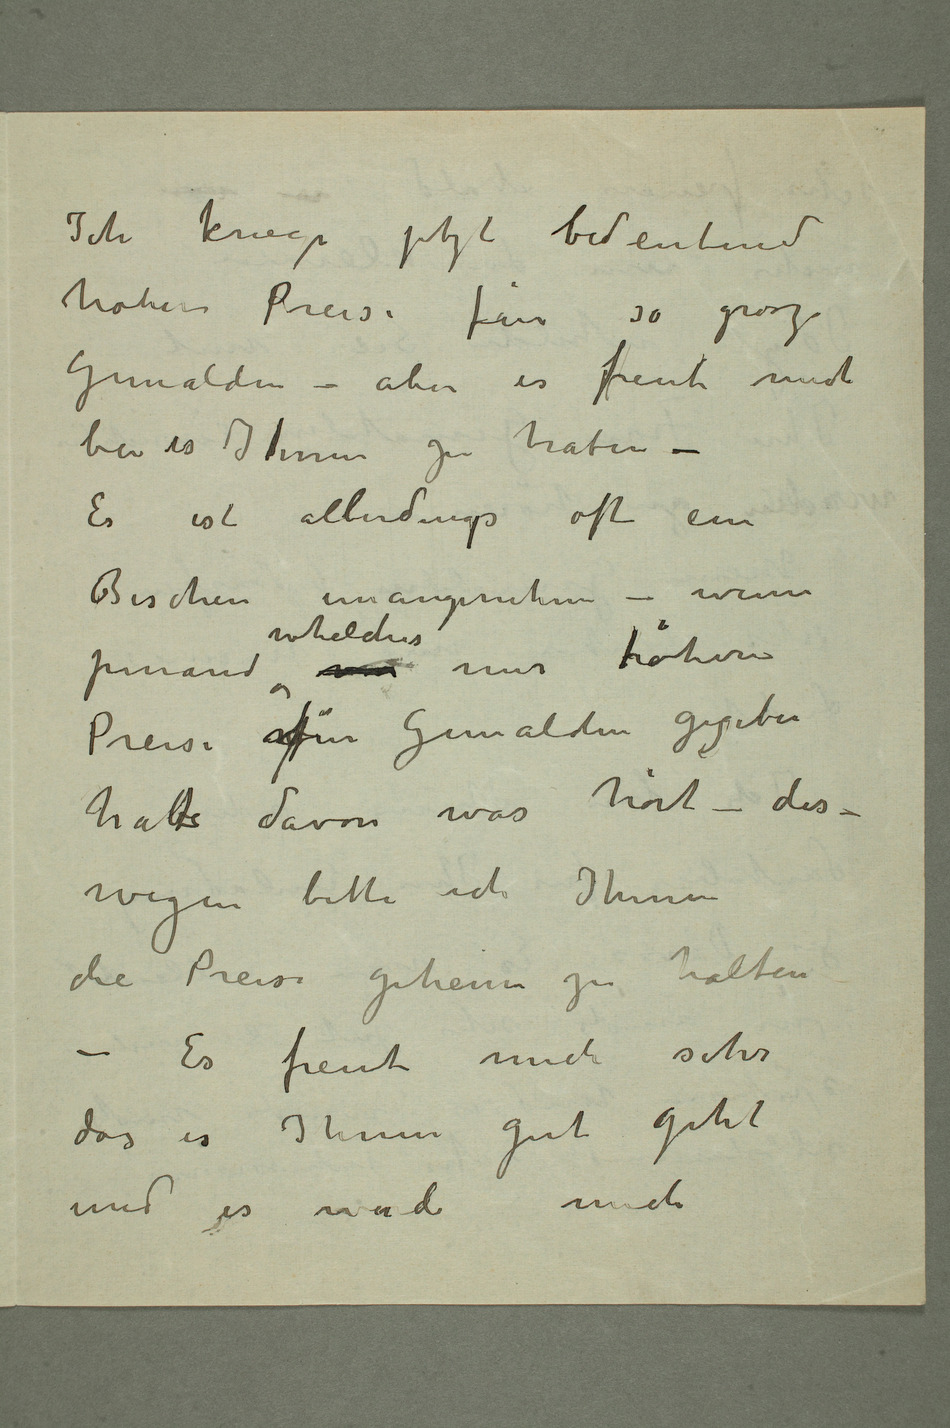 Ich kriege jetzt bedeutend
hohere Preise für so grosze
Gemalden – aber es freut mich
bei es Ihnen zu haben –
Es ist allerdings oft ein
Bischen unangenehm – wenn
jemand whelches mir höhere
Preise für Gemalden gegeben
hatte davon was hört – des-
wegen bitte ich Ihnen
die Preise geheim zu halten
– Es freut mich sehr
das es Ihnen gut geht
und es würde mich